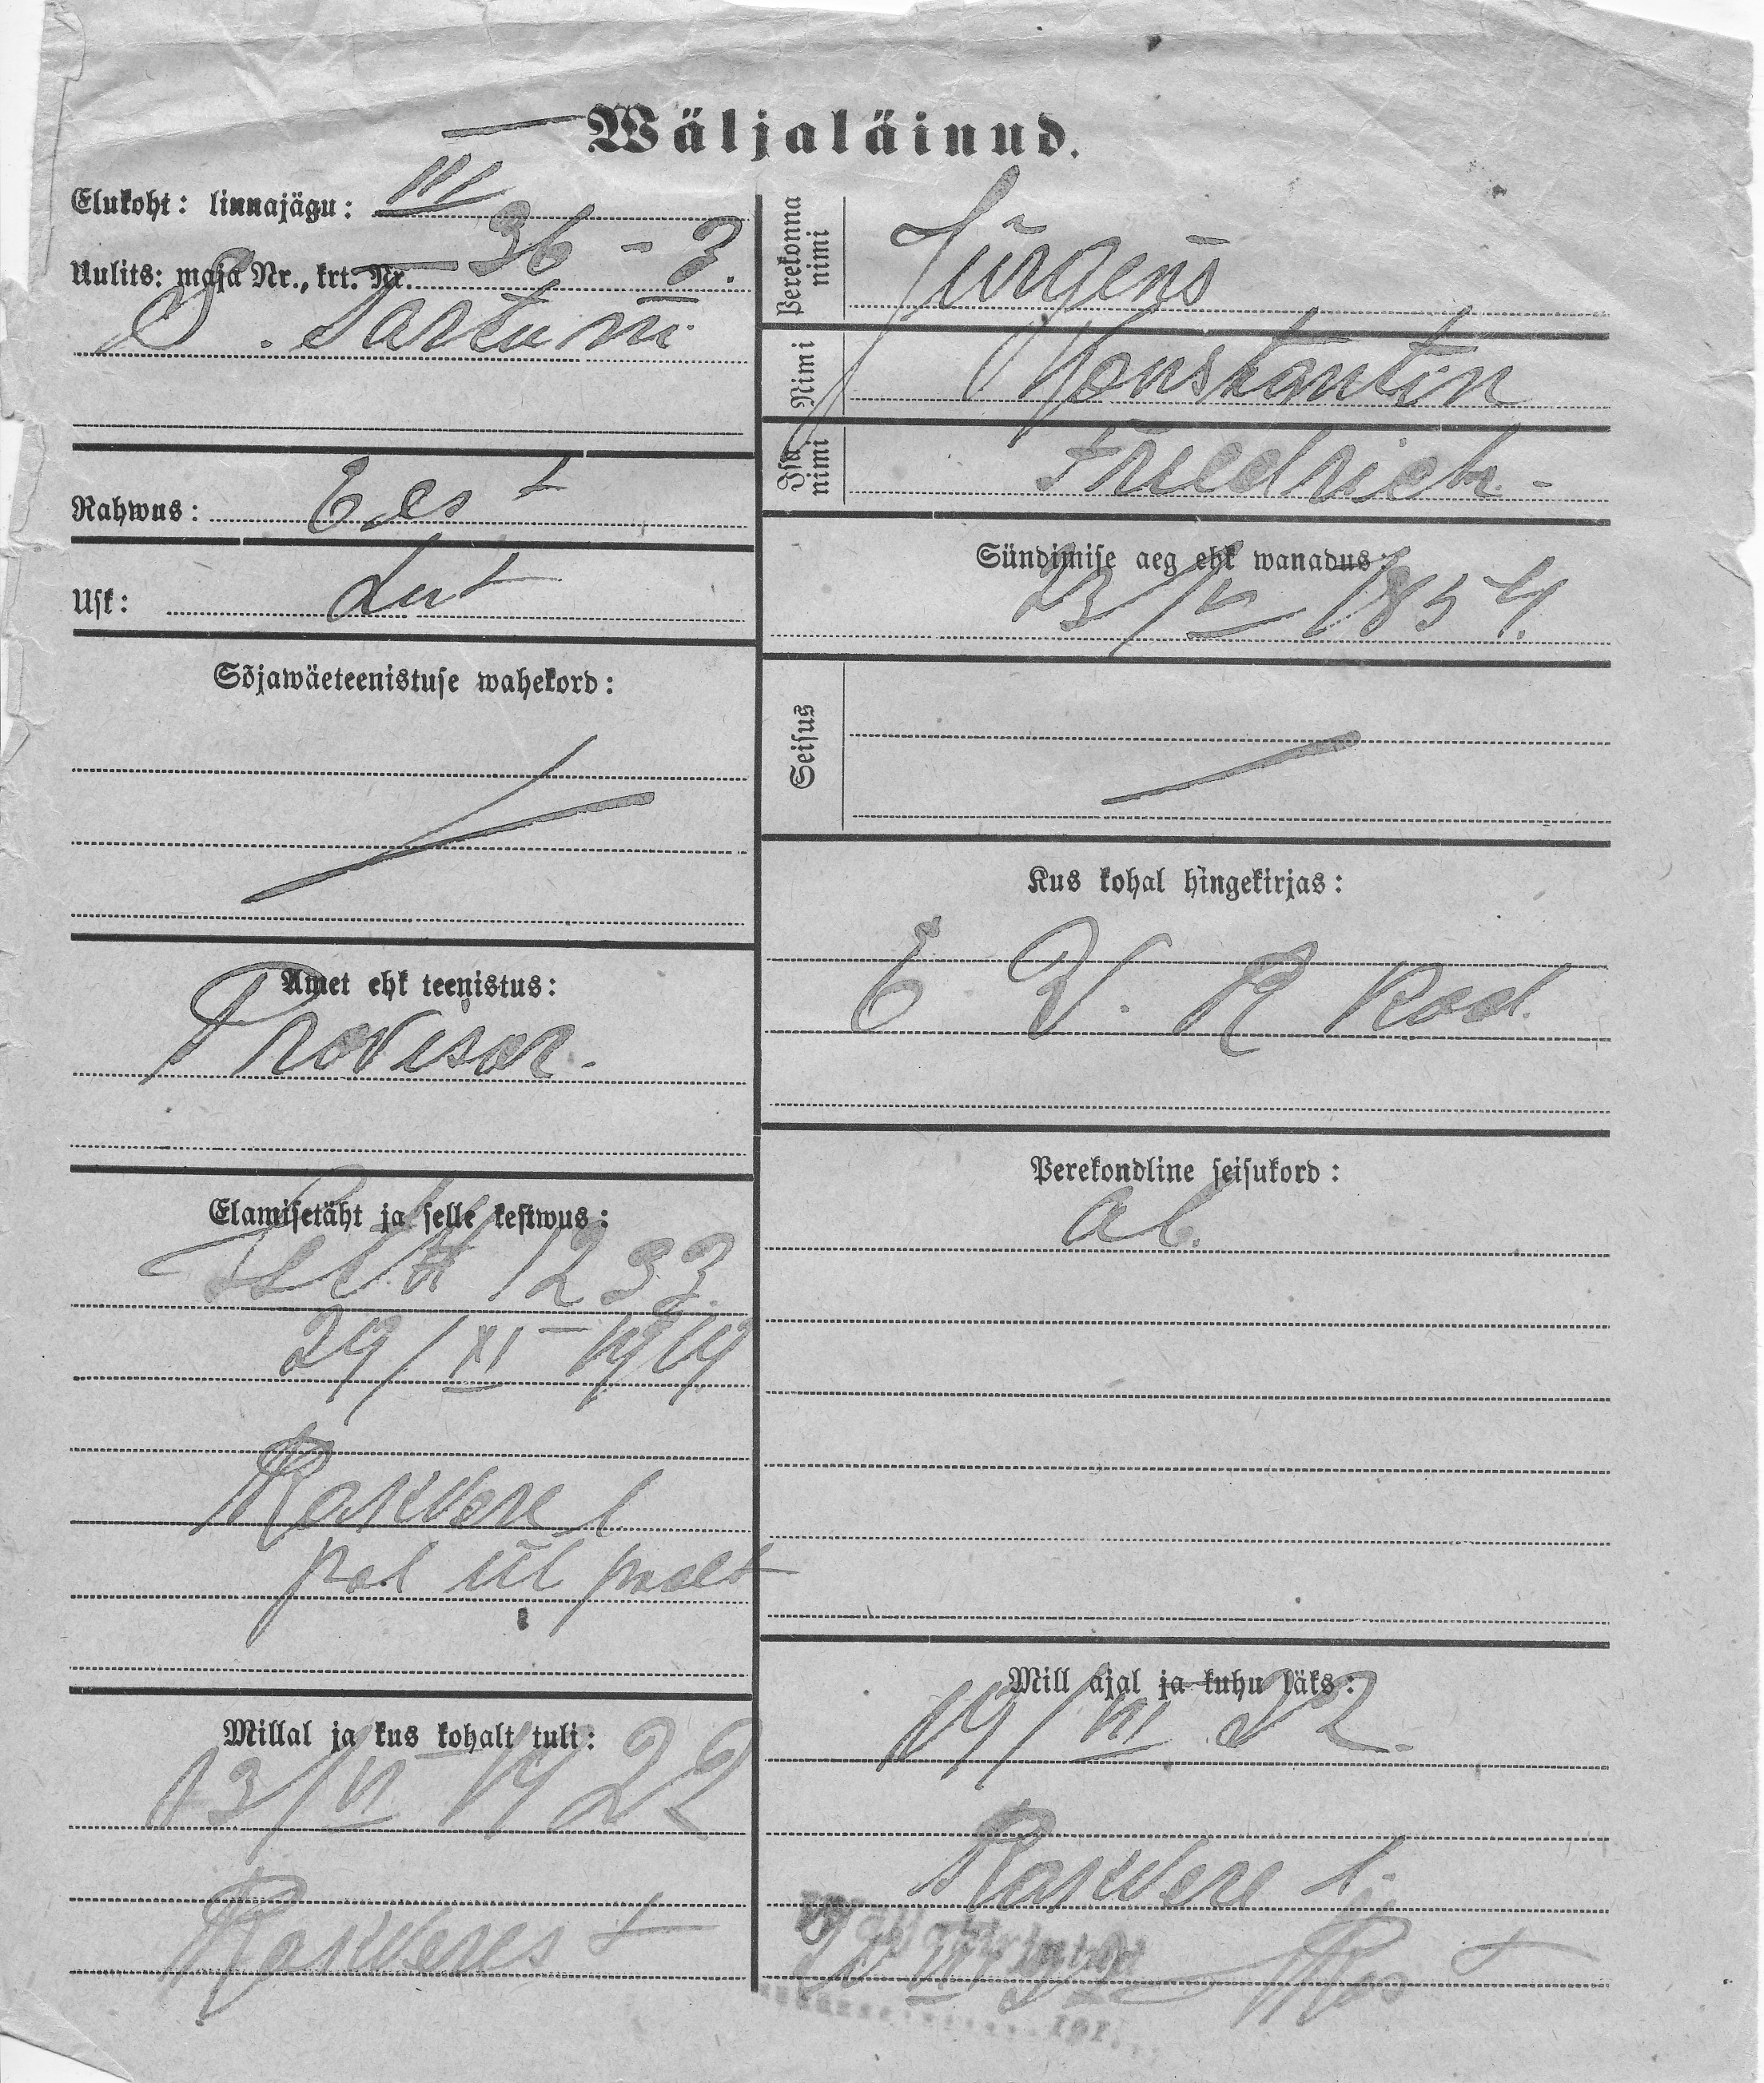 Wäljaläinud.
Elukoht: linnajägu: III
Uulits: maja Nr., krt. Nr. 36 - 3.
S. Tartu m.
Rahwus: Eest
Usk: Lut
Sõjawäeteenistuse wahekord:
Amet ehk teenistus:
Provisor.
Elamisetäht ja selle kestwus:
1233
29/XI - 1919
Rakvere l
pol ül poolt
Millal ja kus kohalt tuli:
13/VI 1922
Rakverest
Perekonna nimi
Jürgens
Nimi
Konstantin
Isa nimi
Friedrich -
Sündimise aeg ehk wanadus:
23/V 1854.
Seisus
Kus kohal hingekirjas:
E V. R kod.
Perekondline seisukord:
ab.
Mill ajal ja kuhu läks:
19/VII 22.
Rakvere l.
191